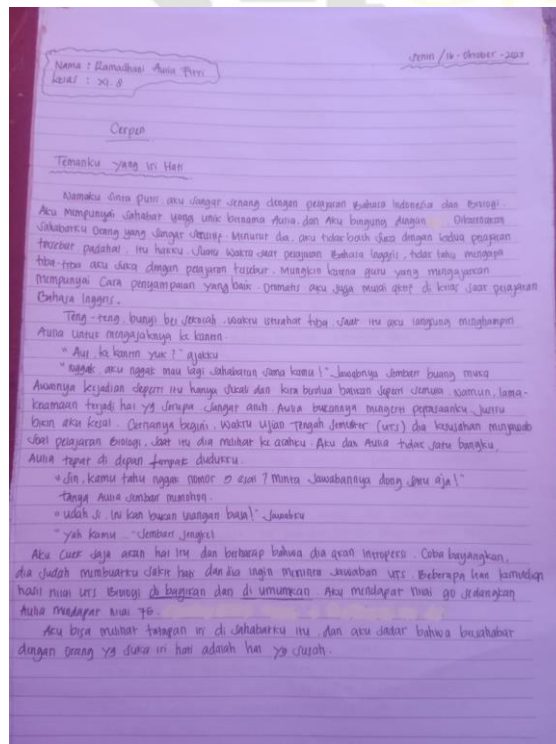 Senin / 16 - Oktober - 2023
Nama : Ramadhani Aulia Putri
Kelas : XI. 8
Cerpen
Temanku yang Iri Hati
Namaku Sinta Putri, aku sangat senang dengan pelajaran Bahasa Indonesia dan Biologi.
Aku mempunyai sahabat yang unik bernama Aulia, dan Aku bingung dengan Dikarenakan
Sahabatku Orang yang sangat Menurut dia, aku tidak boleh suka dengan kedua pelajaran
tersebut padahal itu hakku. Suatu waktu saat pelajaran Bahasa Inggris, tidak tahu mengapa
tiba-tiba aku suka dengan pelajaran tersebut. Mungkin karena guru yang mengajarkan
mempunyai Cara penyampaian yang baik. Otomatis aku juga mulai aktif di kelas saat pelajaran
Bahasa Inggris.
Teng - teng, bunyi bel sekolah, waktu istirahat tiba. Saat itu aku langsung menghampiri
Aulia untuk mengajaknya ke kantin.
" Aul, ke kantin yuk ? " ajakku
" nggak, aku nggak mau lagi sahabatan sama kamu ! " Jawabnya sembari buang muka
Awalnya kejadian seperti itu hanya sekali dan kita berdua baikan seperti semula. Namun, lama-
kelamaan terjadi hal yg serupa sangat aneh. Aulia bukannya mengerti perasaanku justru
bikin aku kesal. Ceritanya begini, waktu Ujian Tengah Semester (UTS) dia kesusahan menjawab
soal pelajaran Biologi, saat itu dia melihat ke arahku. Aku dan Aulia tidak satu bangku,
Aulia tepat di depan tempat dudukku.
" Sin, kamu tahu nggak nomor 5 esai ? minta Jawabannya dong satu aja ! "
tanya Aulia sembari memohon.
" udah si, ini kan bukan ulangan biasa ! " Jawabku
" yah kamu .. " sembari jengkel
Aku Cuek saja akan hal itu dan berharap bahwa dia akan intropeksi. Coba bayangkan,
dia sudah membuatku sakit hati dan dia ingin meminta jawaban UTS. Beberapa hari kemudian
hasil nilai UTS Biologi di bagikan dan di umumkan. Aku mendapat nilai 90 sedangkan
Aulia mendapat nilai 76.
Aku bisa melihat tatapan iri di sahabatku itu, dan aku sadar bahwa bersahabat
dengan Orang yg suka iri hati adalah hal yg susah.